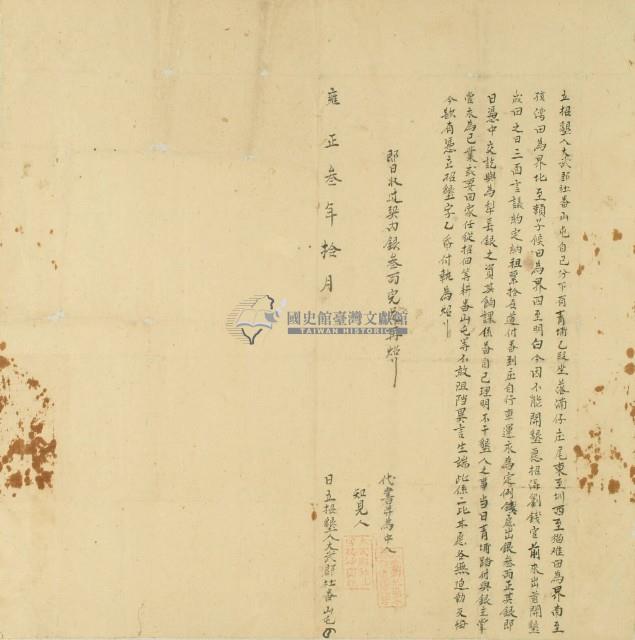 立招墾人大武郡社番山屯自己分下有青埔乙段坐落湳仔庄尾東至圳西至猫难田為界南至
孩濡田為界北至賴子候田為界四至明白今因不能開墾愿招漢劉錢官前來出首開墾
成田之日三面言議約定納租粟拾五道付番到庄自行車運永為定例錢愿出銀叁両正其銀即
日憑中交訖與為犁䓁銀之資其餉課係番自己理明不干墾人之事當日青埔踏付與銀主掌
管永為己業或要回家任從招回等耕番山屯等不敢阻擋異言生端此係二比本愿各無迫勒反悔
今欲有憑立招墾字乙㕥付執為炤
即日收过契内銀叁両完
再炤
雍正叁年拾月
日立招墾人大武郡社番山屯
知見人
代書并為中人
國史館臺灣文獻館
TAIWAN HISTORICA